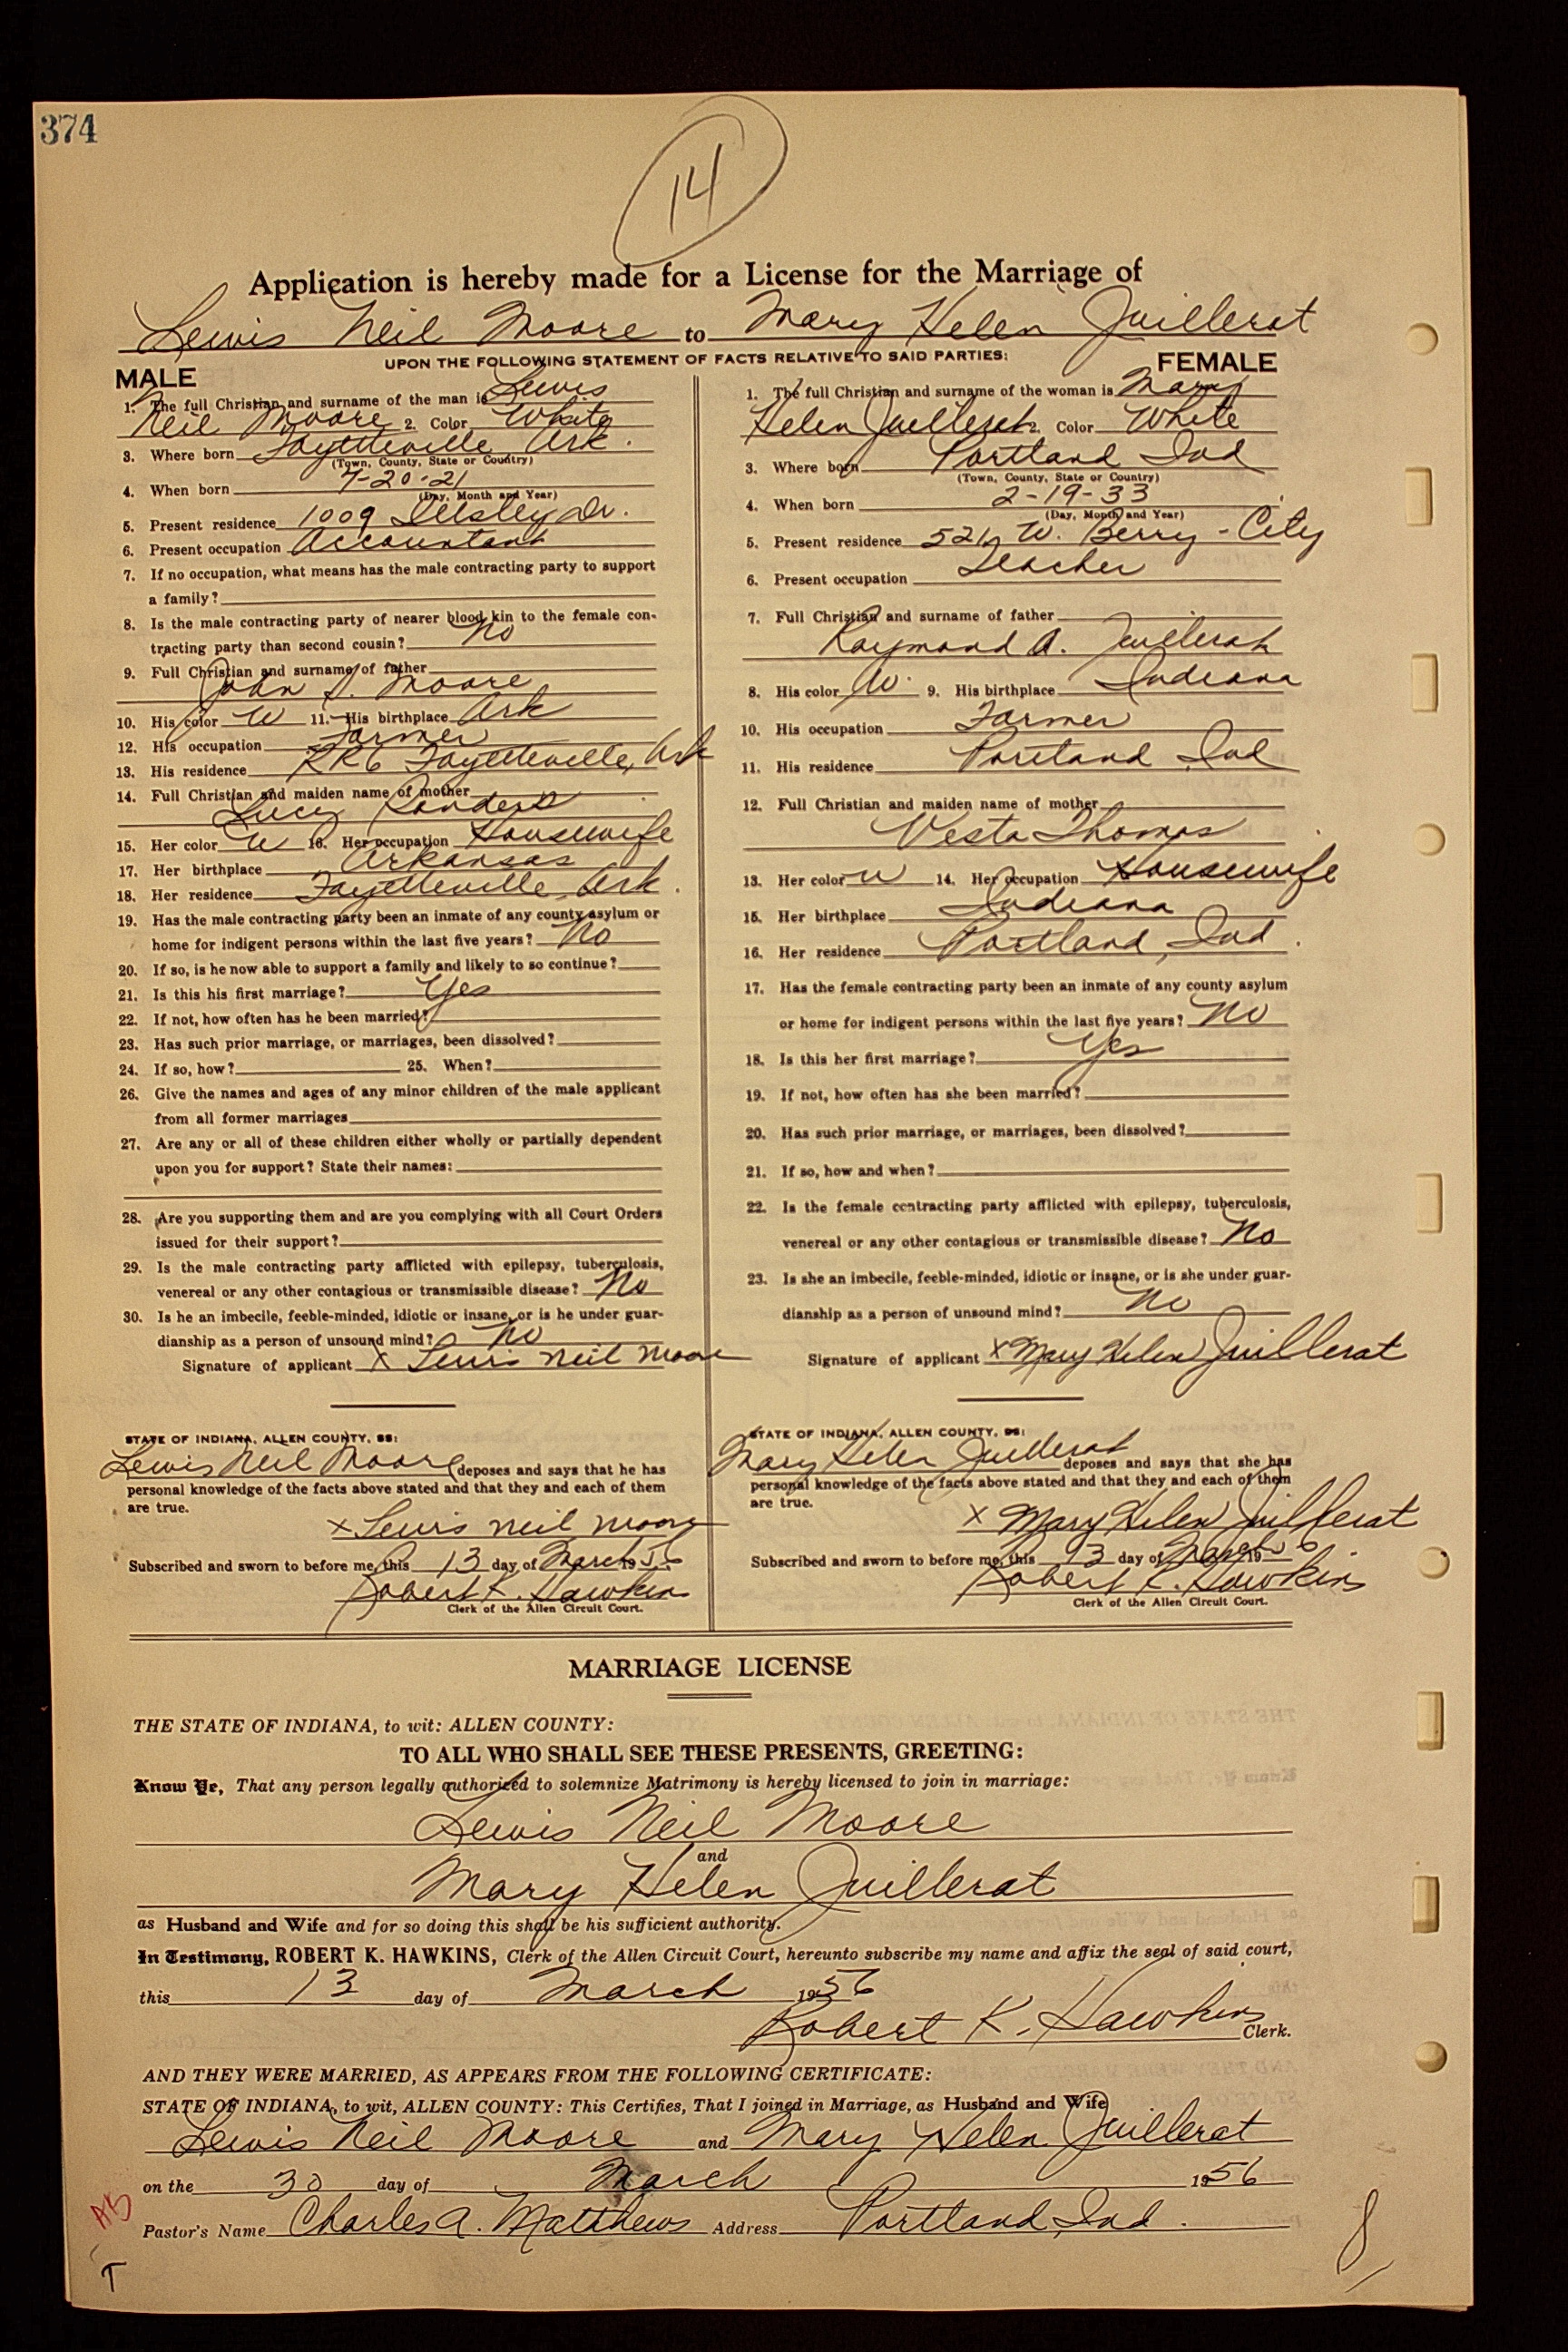 374
14
Application is hereby made for a License for the Marriage of
Lewis Neil Moore to Mary Helen Juillerat
UPON THE FOLLOWING STATEMENT OF FACTS RELATIVE TO SAID PARTIES:
MALE
1. The full Christian and surname of the man is Lewis
Neil Moore 2. Color White
3. Where born Fayetteville Ark.
(Town, County, State or Country)
4. When born 7-20-21
(Day, Month and Year)
5. Present residence 1009 Dr.
6. Present occupation Accountant
7. If no occupation, what means has the male contracting party to support
a family?
8. Is the male contracting party of nearer blood kin to the female con-
tracting party than second cousin? No
9. Full Christian and surname of father
John S. Moore
10. His color W 11. His birthplace Ark
12. His occupation Farmer
13. His residence RR6 Fayetteville, Ark
14. Full Christian and maiden name of mother
Lucy Sanders
15. Her color W 16. Her occupation Housewife
17. Her birthplace Arkansas
18. Her residence Fayetteville, Ark.
19. Has the male contracting party been an inmate of any county asylum or
home for indigent persons within the last five years? No
20. If so, is he now able to support a family and likely to so continue?
21. Is this his first marriage? Yes
22. If not, how often has he been married?
23. Has such prior marriage, or marriages, been dissolved?
24. If so, how? 25. When?
26. Give the names and ages of any minor children of the male applicant
from all former marriages
27. Are any or all of these children either wholly or partially dependent
upon you for support? State their names:
28. Are you supporting them and are you complying with all Court Orders
issued for their support?
29. Is the male contracting party afflicted with epilepsy, tuberculosis,
venereal or any other contagious or transmissible disease? No
30. Is he an imbecile, feeble-minded, idiotic or insane, or is he under guar-
dianship as a person of unsound mind? No
Signature of applicant x Lewis Neil Moore
STATE OF INDIANA, ALLEN COUNTY, SS:
Lewis Neil Moore deposes and says that he has
personal knowledge of the facts above stated and that they and each of them
are true.
x Lewis Neil Moore
Subscribed and sworn to before me, this 13 day of March 1956
Robert K. Hawkins
Clerk of the Allen Circuit Court.
FEMALE
1. The full Christian and surname of the woman is Mary
Helen Juillerat 2. Color White
3. Where born Portland Ind
(Town, County, State or Country)
4. When born 2-19-33
(Day, Month and Year)
5. Present residence W. Berry - City
6. Present occupation Teacher
7. Full Christian and surname of father
Raymond A. Juillerat
8. His color W. 9. His birthplace Indiana
10. His occupation Farmer
11. His residence Portland Ind
12. Full Christian and maiden name of mother
Vesta Thomas
13. Her color W 14. Her occupation Housewife
15. Her birthplace Indiana
16. Her residence Portland, Ind.
17. Has the female contracting party been an inmate of any county asylum
or home for indigent persons within the last five years? No
18. Is this her first marriage? Yes
19. If not, how often has she been married?
20. Has such prior marriage, or marriages, been dissolved?
21. If so, how and when?
22. Is the female contracting party afflicted with epilepsy, tuberculosis,
venereal or any other contagious or transmissible disease? No
23. Is she an imbecile, feeble-minded, idiotic or insane, or is she under guar-
dianship as a person of unsound mind? No
Signature of applicant x Mary Helen Juillerat
STATE OF INDIANA, ALLEN COUNTY, SS:
Mary Helen Juillerat deposes and says that she has
personal knowledge of the facts above stated and that they and each of them
are true.
x Mary Helen Juillerat
Subscribed and sworn to before me, this 13 day of March 1956
Robert K. Hawkins
Clerk of the Allen Circuit Court.
MARRIAGE LICENSE
THE STATE OF INDIANA, to wit: ALLEN COUNTY:
TO ALL WHO SHALL SEE THESE PRESENTS, GREETING:
Know Ye, That any person legally authorized to solemnize Matrimony is hereby licensed to join in marriage:
Lewis Neil Moore
and
Mary Helen Juillerat
as Husband and Wife and for so doing this shall be his sufficient authority.
In Testimony, ROBERT K. HAWKINS, Clerk of the Allen Circuit Court, hereunto subscribe my name and affix the seal of said court,
this 13 day of March 1956
Robert K. Hawkins Clerk.
AND THEY WERE MARRIED, AS APPEARS FROM THE FOLLOWING CERTIFICATE:
STATE OF INDIANA, to wit, ALLEN COUNTY: This Certifies, That I joined in Marriage, as Husband and Wife
Lewis Neil Moore and Mary Helen Juillerat
on the 30 day of March 1956
Pastor's Name Charles A. Matthews Address Portland, Ind.
AB
T
8